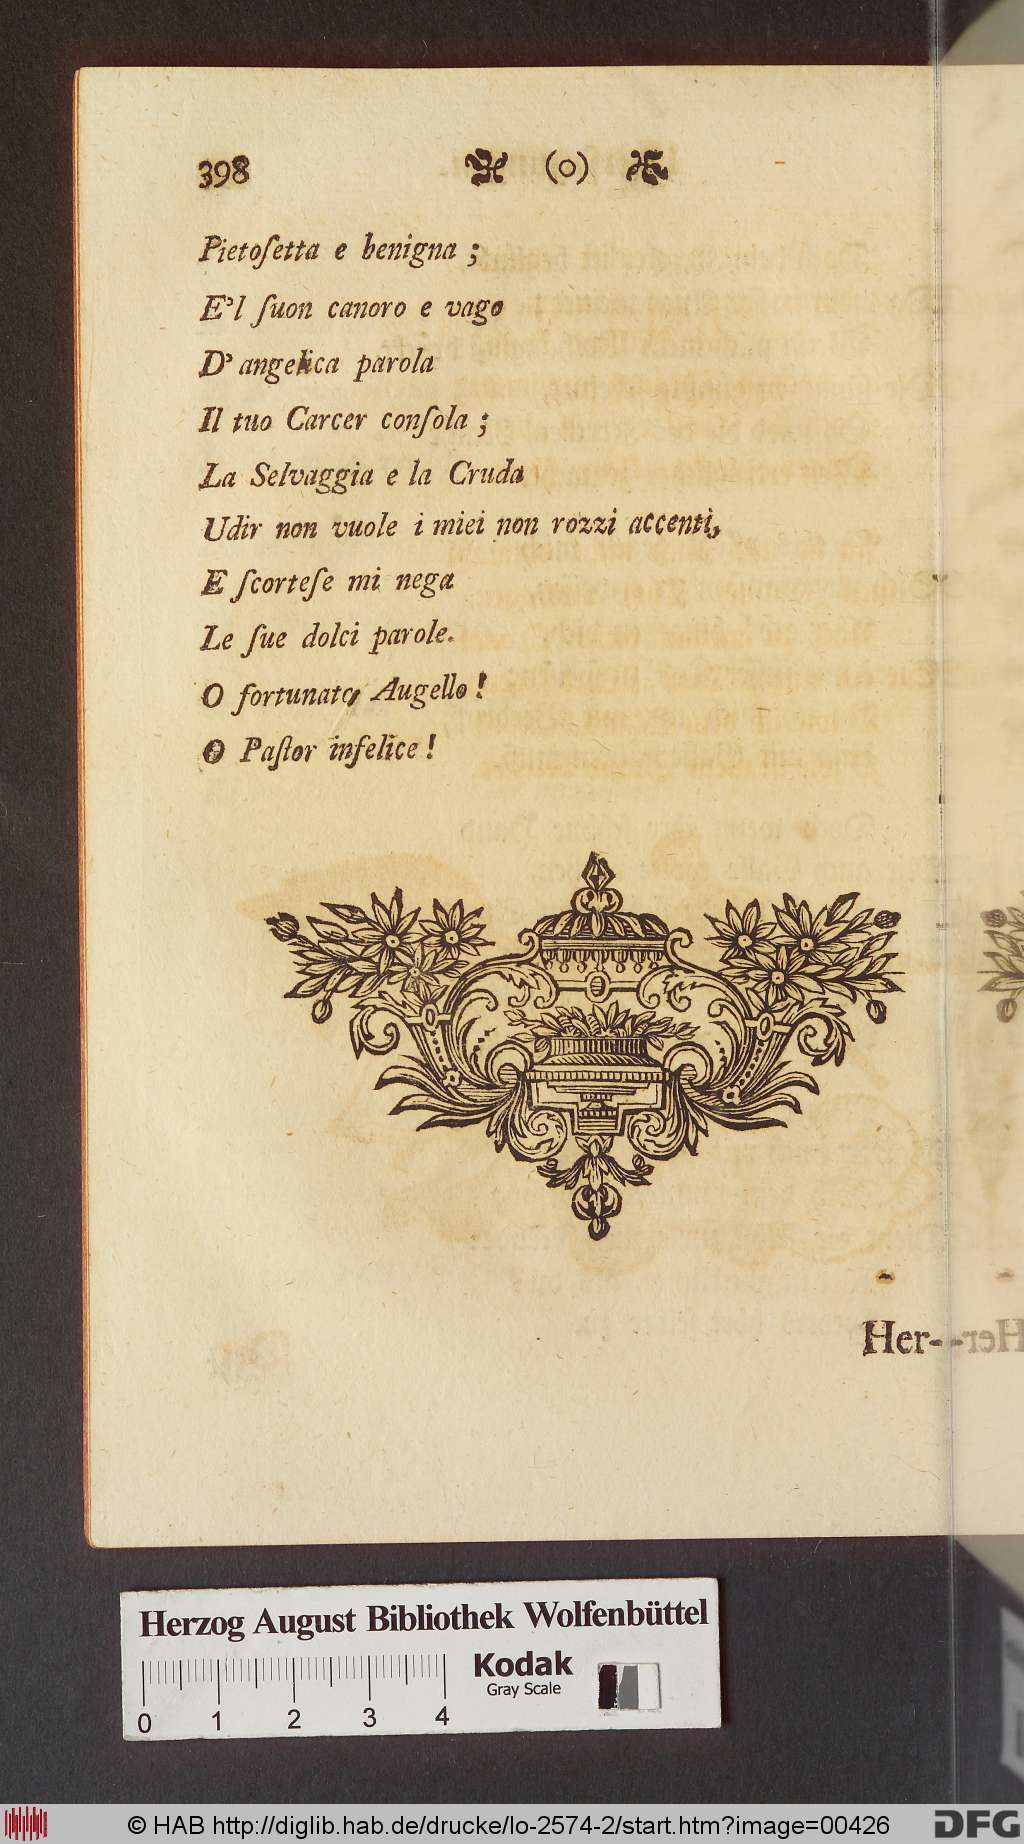 398 (o)
Pietoſetta e benigna ;
E'l ſuon canoro e vago
D' angelica parola
Il tuo Carcer conſola ;
La Selvaggia e la Cruda
Udir non vuole i miei non rozzi accenti,
E ſcorteſe mi nega
Le ſue dolci parole.
O fortunato Augello !
O Paſtor infelice !
Her-
Herzog August Bibliothek Wolfenbüttel
Kodak
Gray Scale
0 1 2 3 4
© HAB http://diglib.hab.de/drucke/lo-2574-2/start.htm?image=00426
DFG